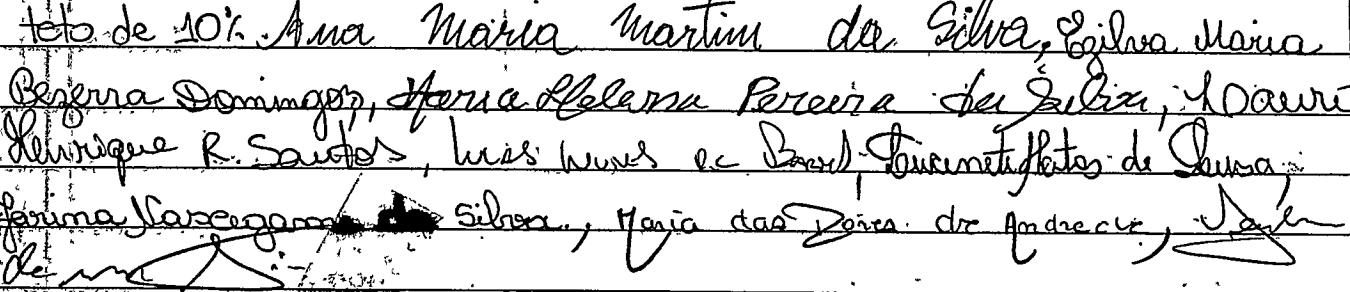 teto de 10%. Ana Maria Martim da Silva, Egilva Maria
Bezerra Domingos, Maria Helena Pereira da Silva,
Henrique R. Santos, Luis Nunes de Lucinete Matos de Sousa,
Silva, Maria das Dores de Andrade,
de